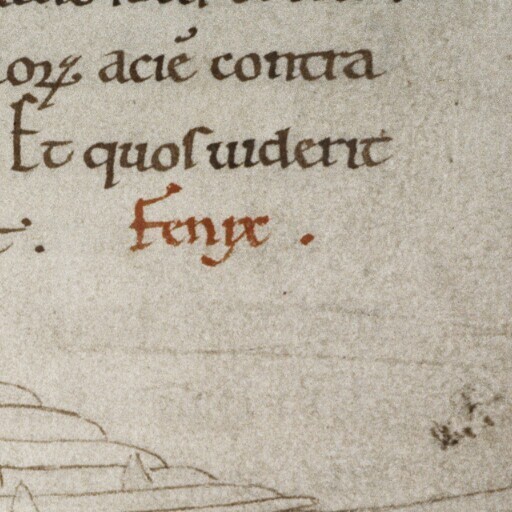 oꝝ aciē contra
Et quos uiderit
Fenix .